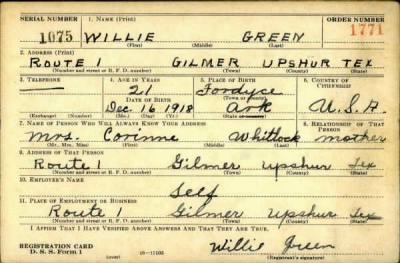 SERIAL NUMBER 1. NAME (Print) ORDER NUMBER
1075 WILLIE GREEN 1771
(First) (Middle) (Last)
2. ADDRESS (Print)
ROUTE 1 GILMER UPSHUR TEX
(Number and street or R. F. D. number) (Town) (County) (State)
3. TELEPHONE 4. AGE IN YEARS 5. PLACE OF BIRTH 6. COUNTRY OF CITIZENSHIP
21 Fordyce
DATE OF BIRTH (Town or county)
Dec. 16, 1918 Ark U.S.A.
(Exchange) (Number) (Mo.) (Day) (Yr.) (State or country)
7. NAME OF PERSON WHO WILL ALWAYS KNOW YOUR ADDRESS 8. RELATIONSHIP OF THAT PERSON
Mrs. Corinne Whitlock mother
(Mr., Mrs., Miss) (First) (Middle) (Last)
9. ADDRESS OF THAT PERSON
Route 1 Gilmer Upshur Tex
(Number and street or R. F. D. number) (Town) (County) (State)
10. EMPLOYER'S NAME
Self
11. PLACE OF EMPLOYMENT OR BUSINESS
Route 1 Gilmer Upshur Tex
(Number and street or R. F. D. number) (Town) (County) (State)
I AFFIRM THAT I HAVE VERIFIED ABOVE ANSWERS AND THAT THEY ARE TRUE.
REGISTRATION CARD Willie Green
D. S. S. Form 1 (over) (Registrant's signature)